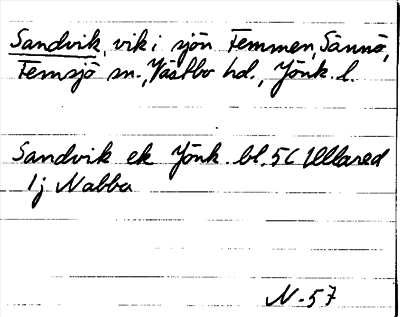 Sandvik, vik i sjön Femmen, Sännö,
Femsjö sn., Västbo hd., Jönk. l.
Sandvik ek Jönk. bl. 56 Ullared
1j Nabba
N-57